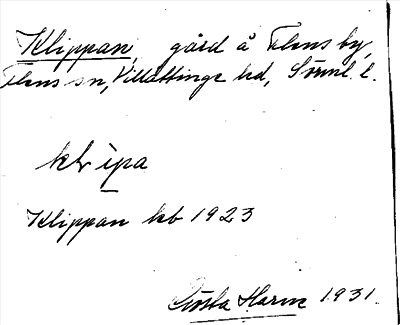 Klippan, gård å Flens by,
Flens sn, Villåttinge hd, Söml. l.
klipa
Klippan kb 1923
Gösta Harne 1931.